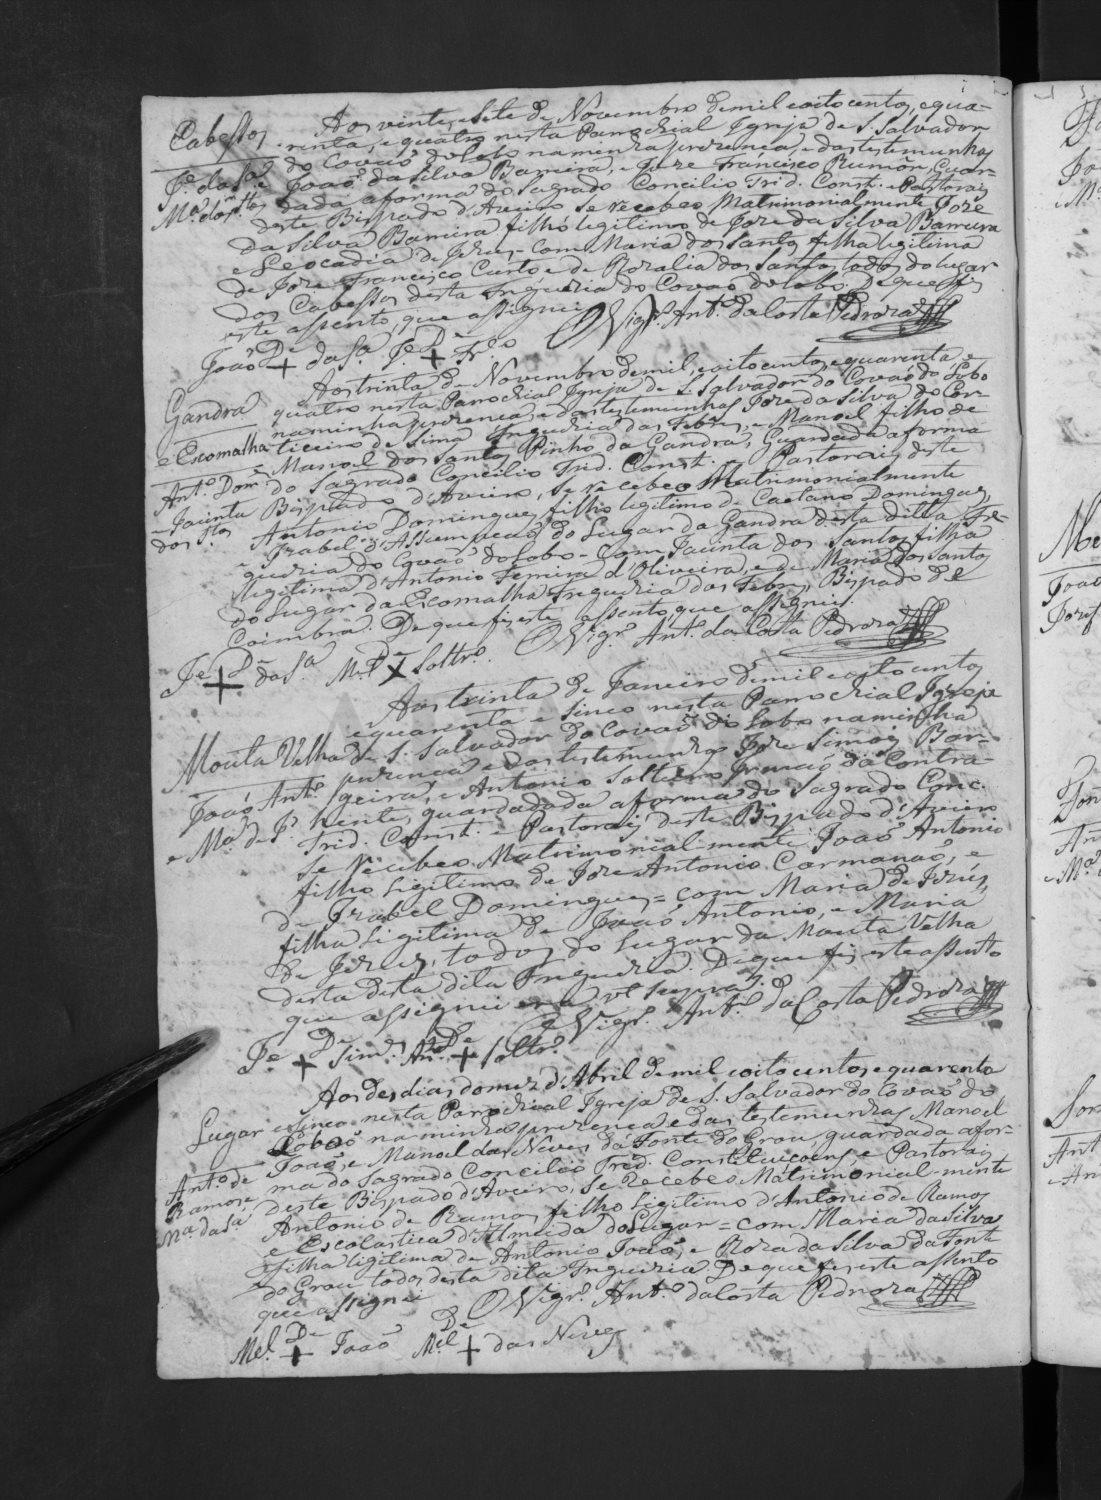 Cabessos
Je. da Sa.
e Ma. dos Stos.
Aos vinte, e Sete de Novembro de mil e oito centos, e qua-
-renta, e quatro nesta Parrochial Igreja de S. Salvador
do Covaõ do Lobo na minha prezença, e das testemunhas
Joaõ da Silva Barreira, e Joze Francisco Guar-
dada a forma do Sagrado Concilio Trid. Const. e Pastorais
deste Bispado d'Aveiro se recebeo Matrimonialmente Joze
da Silva Barreira filho legitimo de Joze da Silva Barreira
e Leocadia de Jezus, com Maria dos Santos filha legitima
de Joze Francisco Curto e de Rozalia dos Santos, todos do lugar
dos Cabessos desta Freguezia do Covaõ do Lobo. De que fis
este assento, que assignei
O Vigr.º Ant.º da Costa Pedroza
Joaõ De + da Sa. Je. De + Fr.co
Gandra
e Escomalha
Ant.º Dom.
Jacinta
dos Stos
Aos trinta de Novembro de mil, e oito centos, e quarenta e
quatro nesta Parrochial Igreja de S. Salvador do Covaõ do Lobo
na minha prezença, e das testemunhas Joze da Silva do Cor-
ticeiro de Sima Freguezia das Febres, e Manoel filho de
Manoel dos Santos Pinho da Gandra, Guardada a forma
do Sagrado Concilio Trid. Const. e Pastorais deste
Bispado d'Aveiro, se recebeo Matrimonialmente
Antonio Domingues, filho legitimo de Caetano Domingues,
e Izabel d'Assumpcaõ do Lugar da Gandra desta ditta Fre-
guezia do Covaõ do Lobo - Com Jacinta dos Santos, filha
legitima d'Antonio Ferreira d'Oliveira, e de Maria dos Santos
do Lugar da Escomalha Freguezia das Febres, Bispado de
Coimbra. De que fis este assento, que assignei.
O Vigr.º Ant.º da Costa Pedroza
Je. De + da Sa. Mel. De + Soltr.º
Mouta Velha
Joaõ Ant.º
e Ma. de Js.
Aos trinta de Janeiro de mil e oito centos
e quarenta e sinco nesta Parrochial Igreja
de S. Salvador do Covaõ do Lobo na minha
prezença e das testemunhas Joze Simoes Bar-
queiro, e Antonio Solteiro Irmaõ da Contra-
hente, guardada a forma do Sagrado Conc.
Trid. Const. e Pastorais deste Bispado d'Aveiro
se recebeo Matrimonial mente Joaõ Antonio
filho Ligitimo de Joze Antonio Carmanaõ, e
de Izabel Domingues = com Maria de Jezus
filha Ligitima de Joaõ Antonio, e Maria
de Jezus, todos do Lugar da Mouta Velha
desta desta dita Freguezia. De que fis este assento
que assignei era ut supra.
O Vigr.º Ant.º da Costa Pedroza
Je. De + Sim. Ant.º De + Soltr.º
Lugar
Ant.º de
Ramos, e
Ma. da Sa.
Aos des dias do mez d'Abril de mil e oito centos, e quarenta
e sinco nesta Parrochial Igreja de S. Salvador do Covaõ do
Lobo na minha prezença e das testemunhas, Manoel
Joaõ, e Manoel das Neves da Fonte do Grou, guardada a for-
ma do Sagrado Concilio Trid. Constituicoens e Pastorais
deste Bispado d'Aveiro, se recebeo Matrimonial-mente
Antonio de Ramos, filho Ligitimo d'Antonio de Ramos
e Escolastica d'Almeida do Lugar = com Maria da Silva
filha ligitima de Antonio Joaõ, e Roza da Silva da Fonte
do Grou todos desta dita Freguezia De que fis este assento
que assignei
O Vigr.º Ant.º da Costa Pedroza
Mel. De + Joaõ Mel. De + das Neves